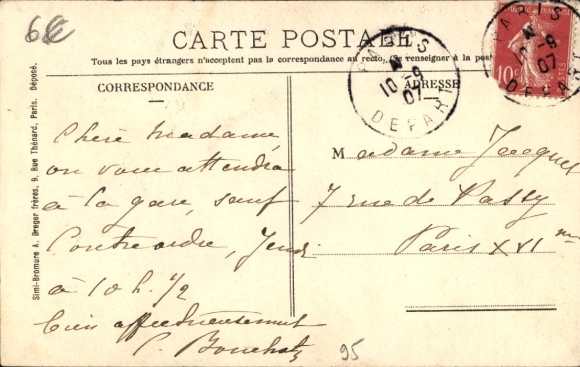 6€
CARTE POSTALE
Tous les pays étrangers n'acceptent pas la correspondance au recto. (Se renseigner à la poste
CORRESPONDANCE
ADRESSE
PARIS
10 -9
07
DEPART
PARIS
10 -9
07
DEPART
10c
Simi-Bromure A. Breger frères, 9, Rue Thénard, Paris. Déposé.
Chère Madame
on vous attendra
à la gare, sauf
Contre ordre, Jeudi
à 10 h. 1/2
bien affectueusement
Madame Jacquet
7 rue de Passy
Paris XVI me
95